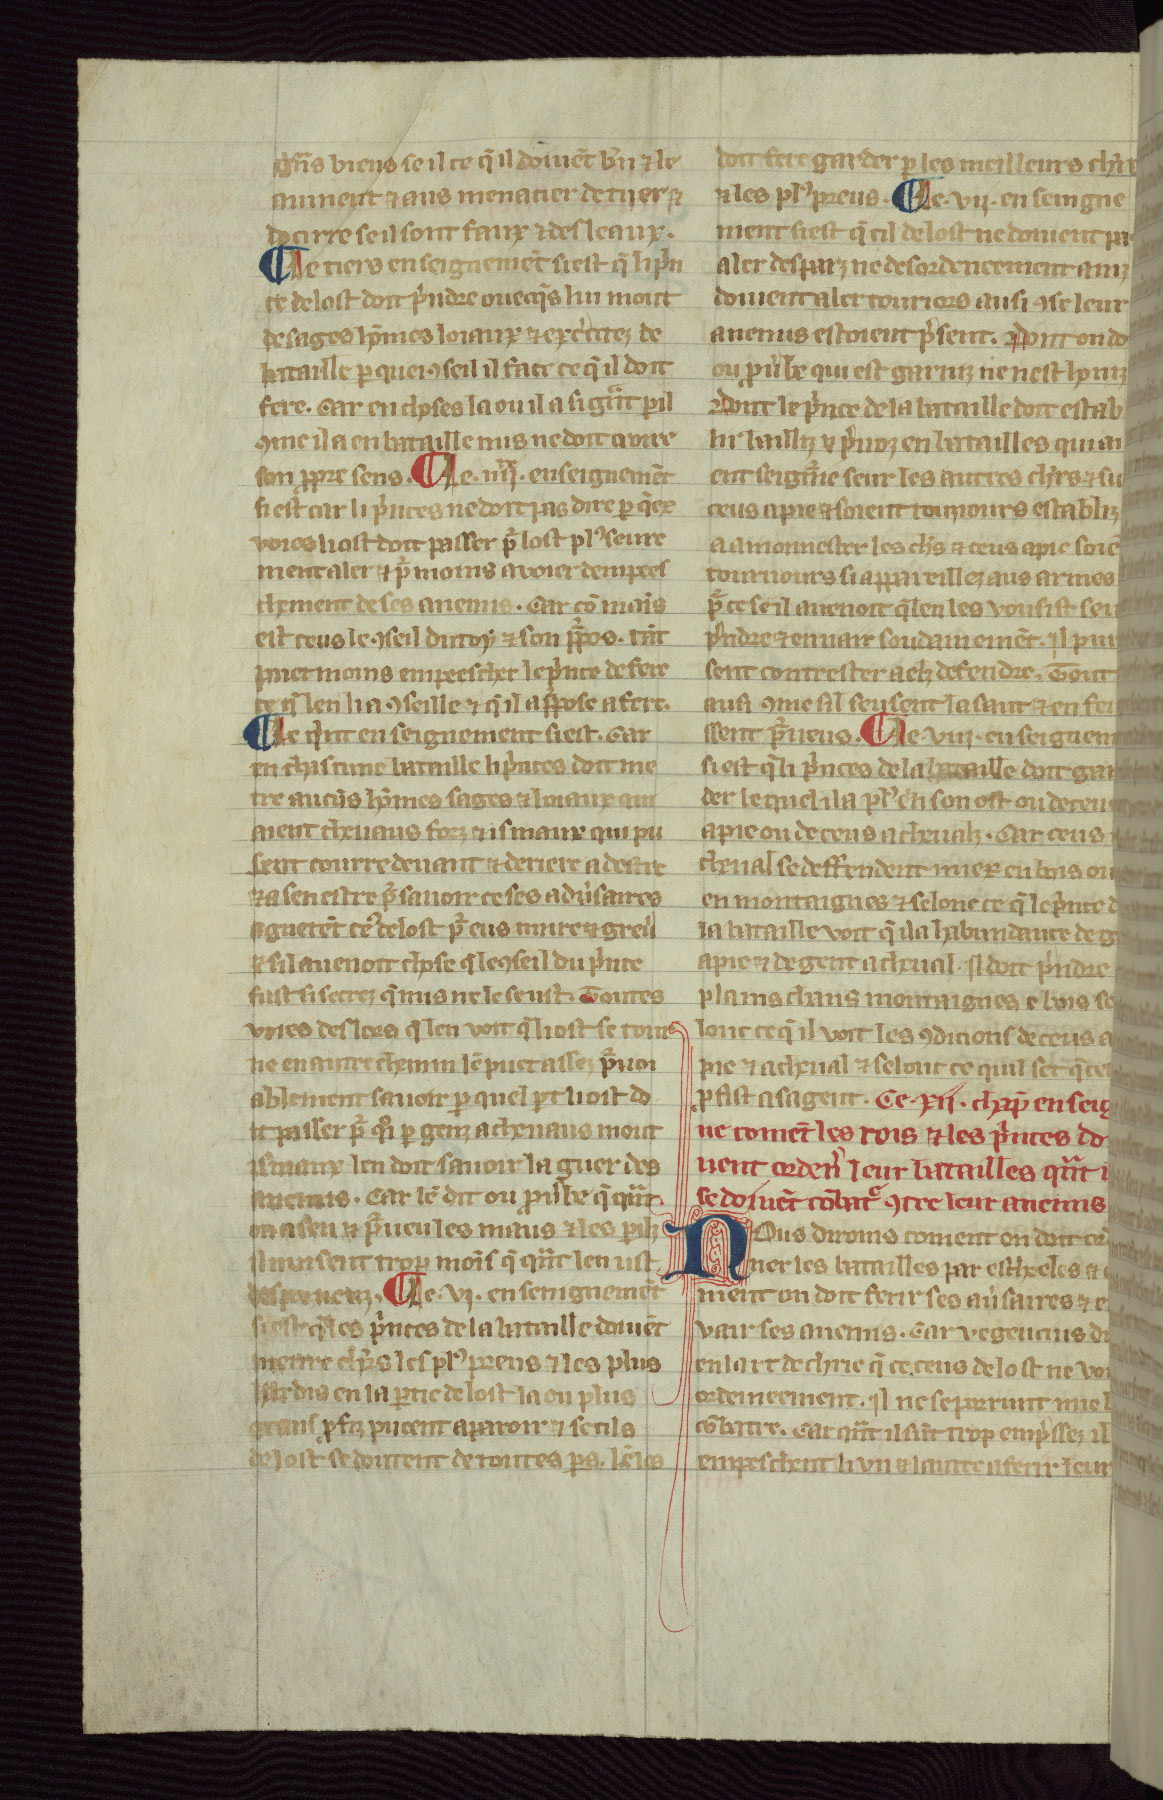 grãs biens se il ce q̃ il doiuẽt bñ ⁊ le
aument ⁊ aus menacier de tuer ⁊
docirre se il sont faux ⁊ desleaux.
¶ Le tiers enseignemẽt si est q̃ li p̾n
ce de lost doit p̾ndre ouecq̃s lui mout
de sages hõmes loiaux ⁊ exẽcitez de
bataille par quel ꝯseil il face ce q̃ il doit
fere. Car en choses la ou il a si grãt peril
ꝯme il a en bataille nus ne doit croire
son propre sens. ¶ Le .iiij. enseignemẽt
si est car li p̾nces ne doit pas dire par q̃ex
voies li ost doit passer pour lost plꝰ seure
ment aler ⁊ pour moins auoier dempees
chement de ses anemis. Car cõ mains
est ceus le ꝯseil du roy ⁊ son ppos. tãt
puet moins empeescher le p̾nce de fere
ce q̃ len li a ꝯseille ⁊ q̃ il a ppose a fere.
¶ Le q̾nt enseignement si est. Car
en chascune bataille li p̾nces doit me
tre aucũs hõmes sages ⁊ loiaux qui
aient cheuaus forz ⁊ isniaux qui pu
sent courre deuant ⁊ deriere a destre
⁊ a senestre pour sauoir ce ses aduersaires
aguetẽt ceꝰ de lost pour eus nuire ⁊ greu̾
⁊ sil auenoit chose q̃ le ꝯseil du p̾nce
fust si secrez q̃ nus ne le seust. Toutes
voies deslors q̃ len voit q̃ li ost se tour
ne en autre chemin lẽ puet assez pour uoi
ablement sauoir par quel part li ost do
it passer pour qoi par genz a cheuaus mout
isniaux len doit sauoir la guer des
anemis. Car lẽ dit ou prou̾be q̃ quãt
on a seu ⁊ pourueu les maus ⁊ les perilz
il nuisent trop moĩs q̃ quãt len nist
desporueuz. ¶ Le .vj. enseingnemẽt
si est q̃ les p̾nces de la bataille doiuẽt
metre chrs les plꝰ preus ⁊ les plus
hardis en la partie de lost la ou plus
grans profiz pueent aparoir ⁊ se cils
de lost se doutent de toutes pars. lẽ les
doit fere garder par les meilleurs chrs
⁊ les plꝰ preus. ¶ Le .vij. enseingne
ment si est q̃ cil de lost ne doiuent pa
aler despars ne desordeneement ainz
doiuent aler touriors ausi ꝯse leur
anemis estoient p̾sent. dont on do
ou prou̾be qui est garniz ne nest honiz
dont le p̾nce de la bataille doit estab
lir bailliz ⁊ p̾uoz en batailles qui ai
ent seignorie seur les autres chrs ⁊ su
ceus a pie ⁊ soient touziours establiz
a amonnester les chrs ⁊ ceus a pie soiẽ
touriours si appareillez aus armes
pour ce se il auenoit q̃ len les vousist seu
p̾ndre ⁊ enuair soudainemẽt. Il puis
sent contrester a elz defendre. Tout
ausi ꝯme sil seussent la saut ⁊ en feu
ssent pourueus. ¶ Le .viij. enseignem
si est q̃ li p̾nces de la bataille doit gar
der le quel il a plꝰ en son ost ou de ceus
a pie ou de ceus a cheualz. Car ceus
cheual se deffendent miex en bois ou
en montaignes ⁊ selonc ce q̃ le p̾nce d
la bataille voit q̃ il a habundance de g
a pie ⁊ de gent a cheual. Il doit p̾ndre
plains chans montaignes e bois se
lonc ce q̃ il voit les ꝯdicions de ceus a
pie ⁊ a cheual ⁊ selonc ce quil set q̃ ce
profist a sa gent. Ce .xij. chap̃ enseig
ne comẽt les rois ⁊ les p̾nces do
iuent ordener leur batailles quãt i
se doiuẽt cõbatre ꝯtre leur anemis
Nous dirons coment on doit or
ner les batailles par escheles ⁊
ment on doit ferir ses auersaires ⁊ e
vair ses anemis. Car vegencius di
en lart de chrie q̃ ce ceus de lost ne vo
ordeneement. Il ne se porrunt mie b
cõbatre. Car quãt il sũt trop emp̾ssez il
empeschent li vn ⁊ lautre a ferir leur